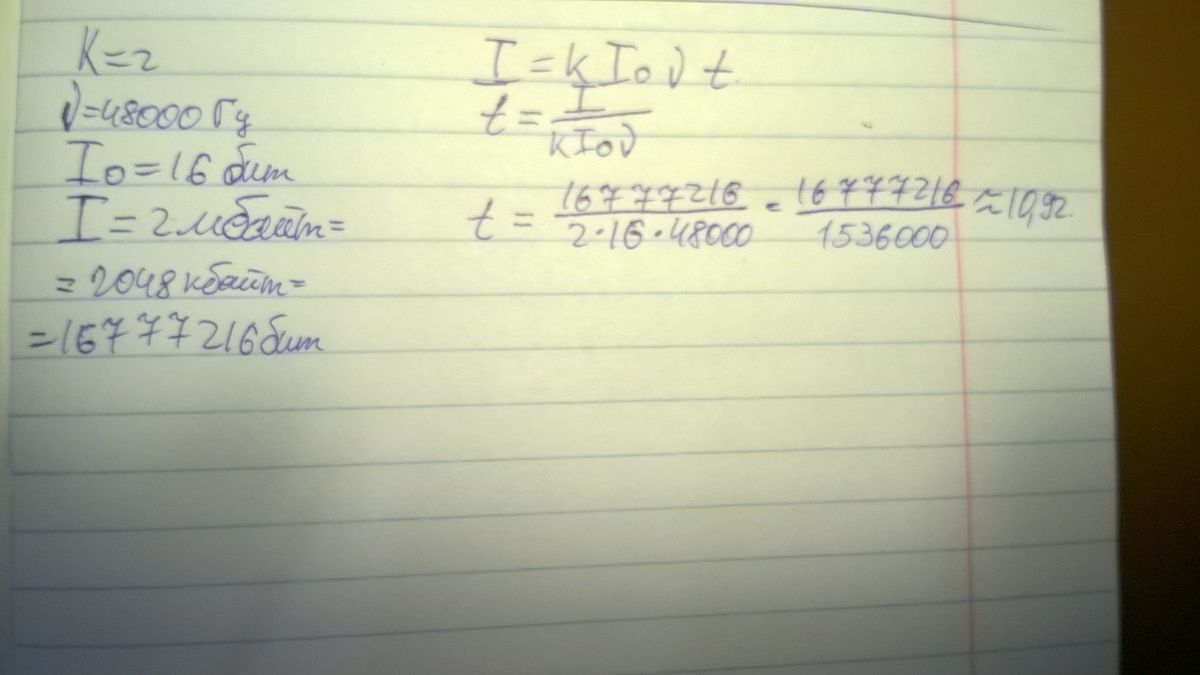 K=2
ν=48000 Гц
I₀=16 бит
I=2 мбайт=
=2048 кбайт=
=16777216 бит
I = k I₀ ν t.
t = I / kI₀ν
t = 16777216 / 2·16·48000 = 16777216 / 1536000 ≈ 10,92.